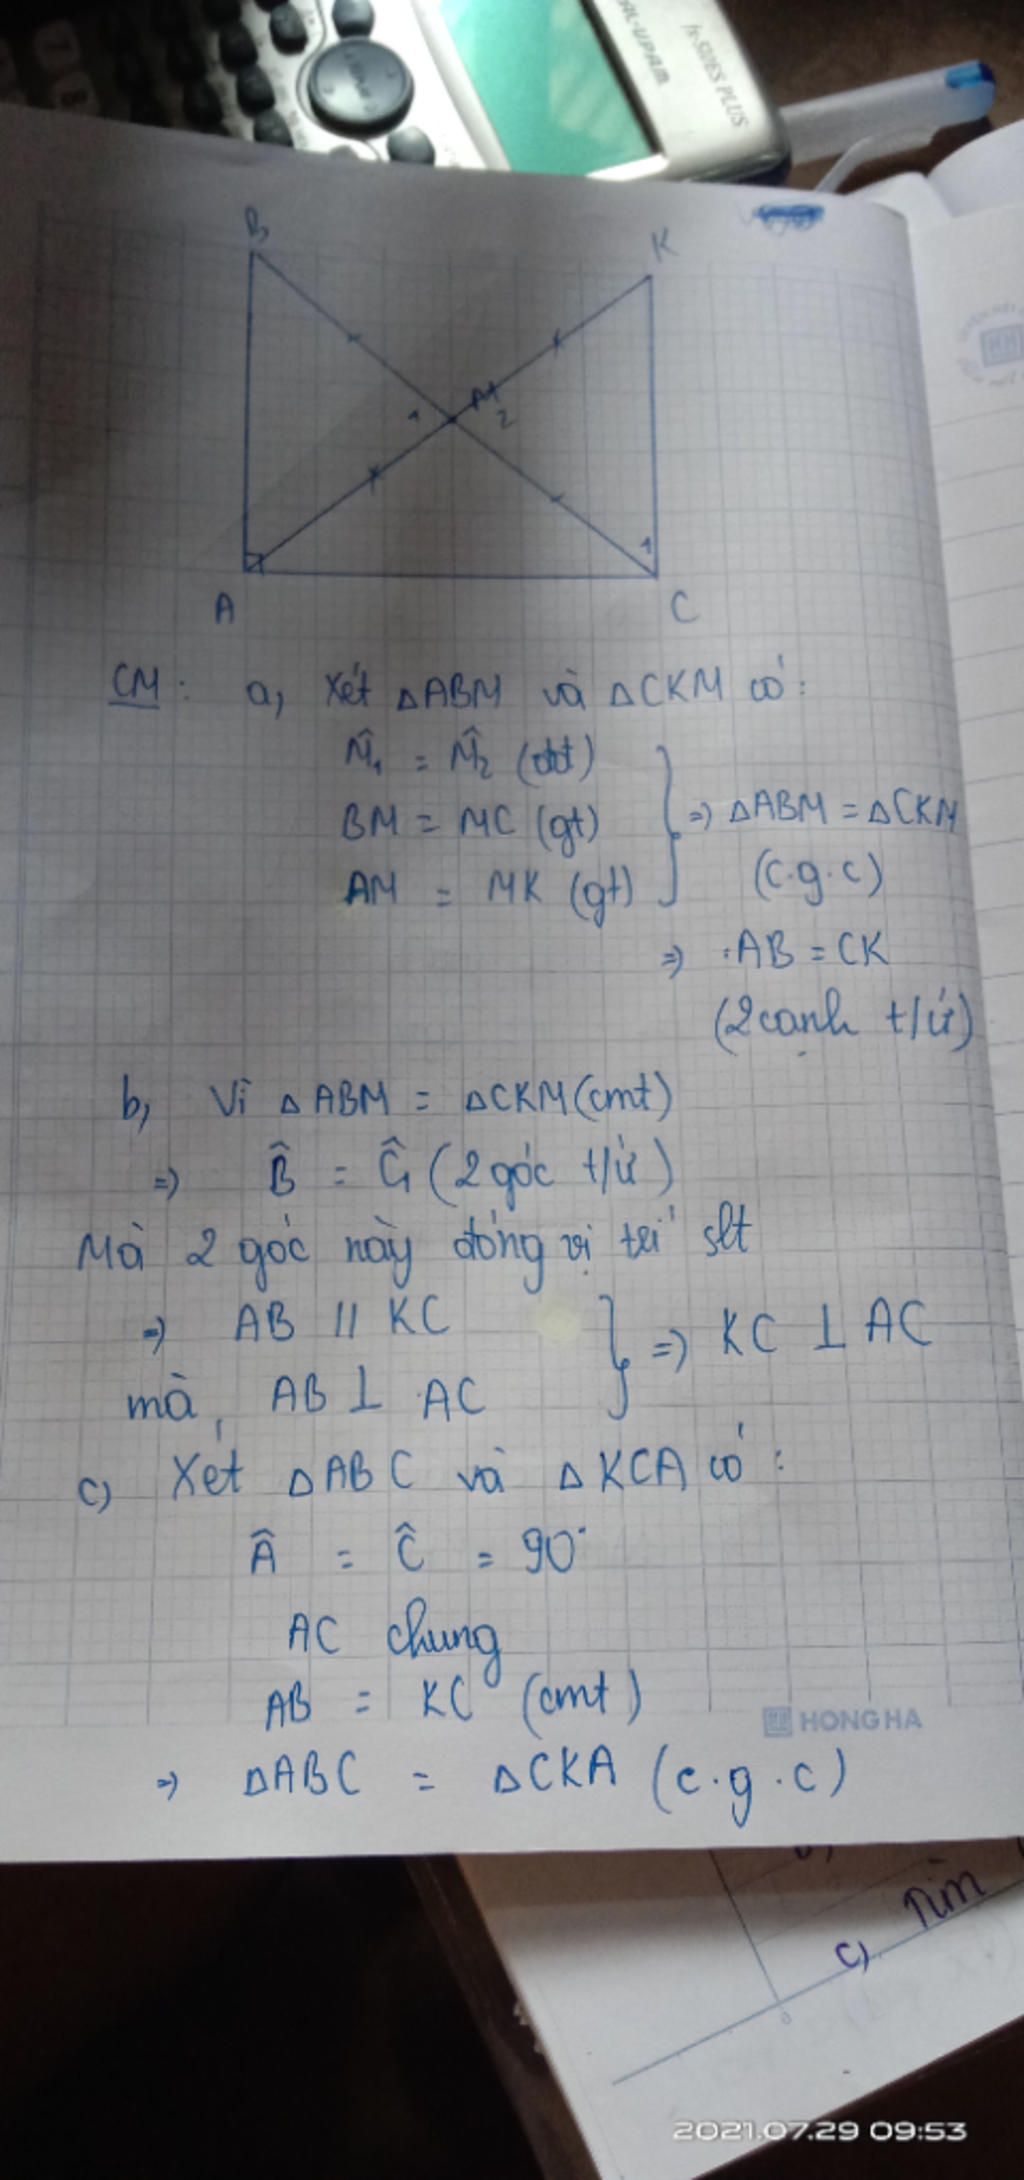 fx-500ES PLUS
B
K
M
1
2
1
A
C
CM: a, Xét △ABM và △CKM có:
M̂₁ = M̂₂ (đđ)
BM = MC (gt)
AM = MK (gt)
=> △ABM = △CKM
(c.g.c)
=> AB = CK
(2 cạnh t/ứ)
b, Vì △ABM = △CKM (cmt)
=> B̂ = Ĉ₁ (2 góc t/ứ)
Mà 2 góc này đóng vị trí slt
=> AB // KC
mà, AB ⊥ AC
=> KC ⊥ AC
c) Xét △ABC và △KCA có:
Â = Ĉ = 90°
AC chung
AB = KC (cmt)
HONG HA
=> △ABC = △CKA (c.g.c)
c) Tìm
2021.07.29 09:53